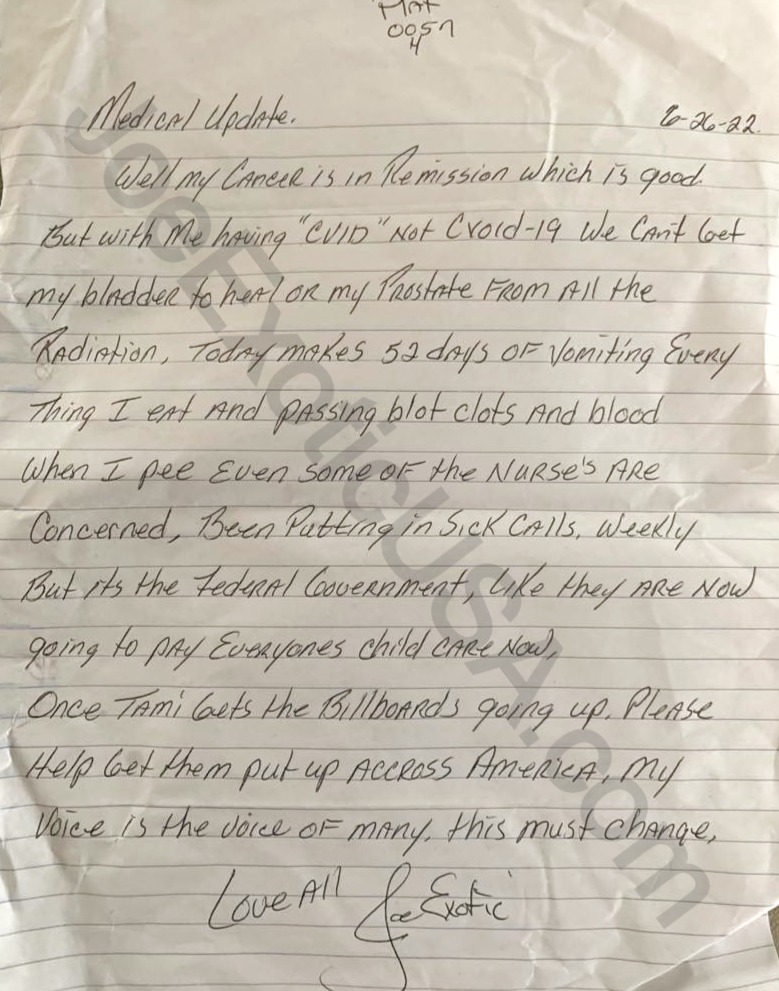 MAT
0057
4
Medical Update. 6-26-22.
Well my Cancer is in Remission which is good.
But with Me having "CVID" Not Cvoid-19 We Can't Get
my bladder to heal or my Prostate From All the
Radiation, Today makes 52 days of Vomiting Every
Thing I eat And passing blot clots And blood
When I pee Even Some of the Nurse's Are
Concerned, Been Putting in Sick Calls, Weekly
But its the Federal Government, Like they Are Now
going to pay Everyones child care Now,
Once Tami Gets the Billboards going up. Please
Help Get them put up Accross America, My
Voice is the voice of many, this must change,
Love All Joe Exotic
JoeExoticUSA.com